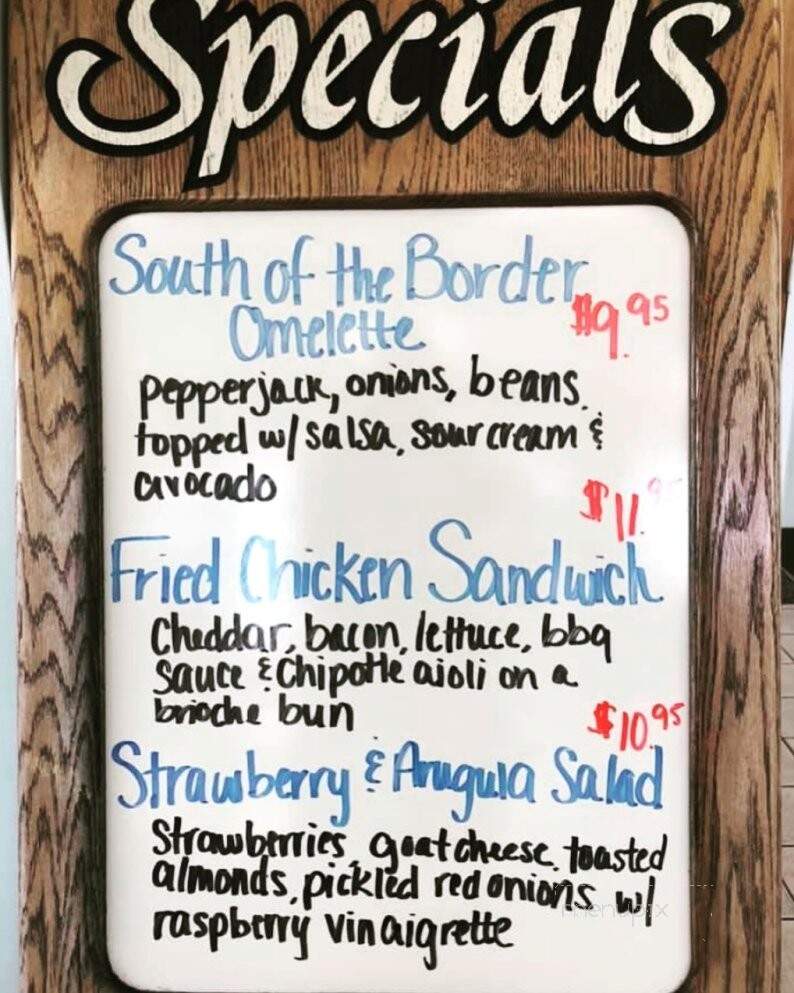 Specials
South of the Border
Omelette $9.95
pepperjack, onions, beans.
topped w/ salsa, sour cream &
avocado
$11.95
Fried Chicken Sandwich
Cheddar, bacon, lettuce, bbq
sauce & Chipotle aioli on a
brioche bun
$10.95
Strawberry & Arugula Salad
Strawberries, goat cheese, toasted
almonds, pickled red onions w/
raspberry vinaigrette
menupix